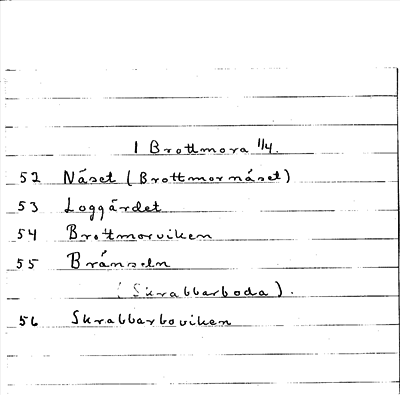 1 Brottmora 1/4.
52 Näset (Brottmornäset)
53 Loggärdet
54 Brottmorviken
55 Bränseln
(Skrabbarboda).
56 Skrabbarboviken